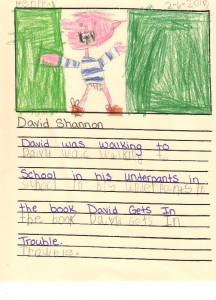 2-6-2018
David Shannon
David was walking to
David was walking to
School in his underpants in
school in his underpants in
the book David Gets In
the book David Gets In
Trouble.
Trouble.